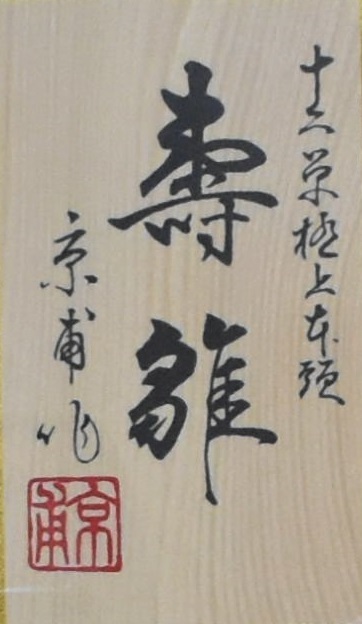 十二単極上本頭
壽雛
京甫作
京甫